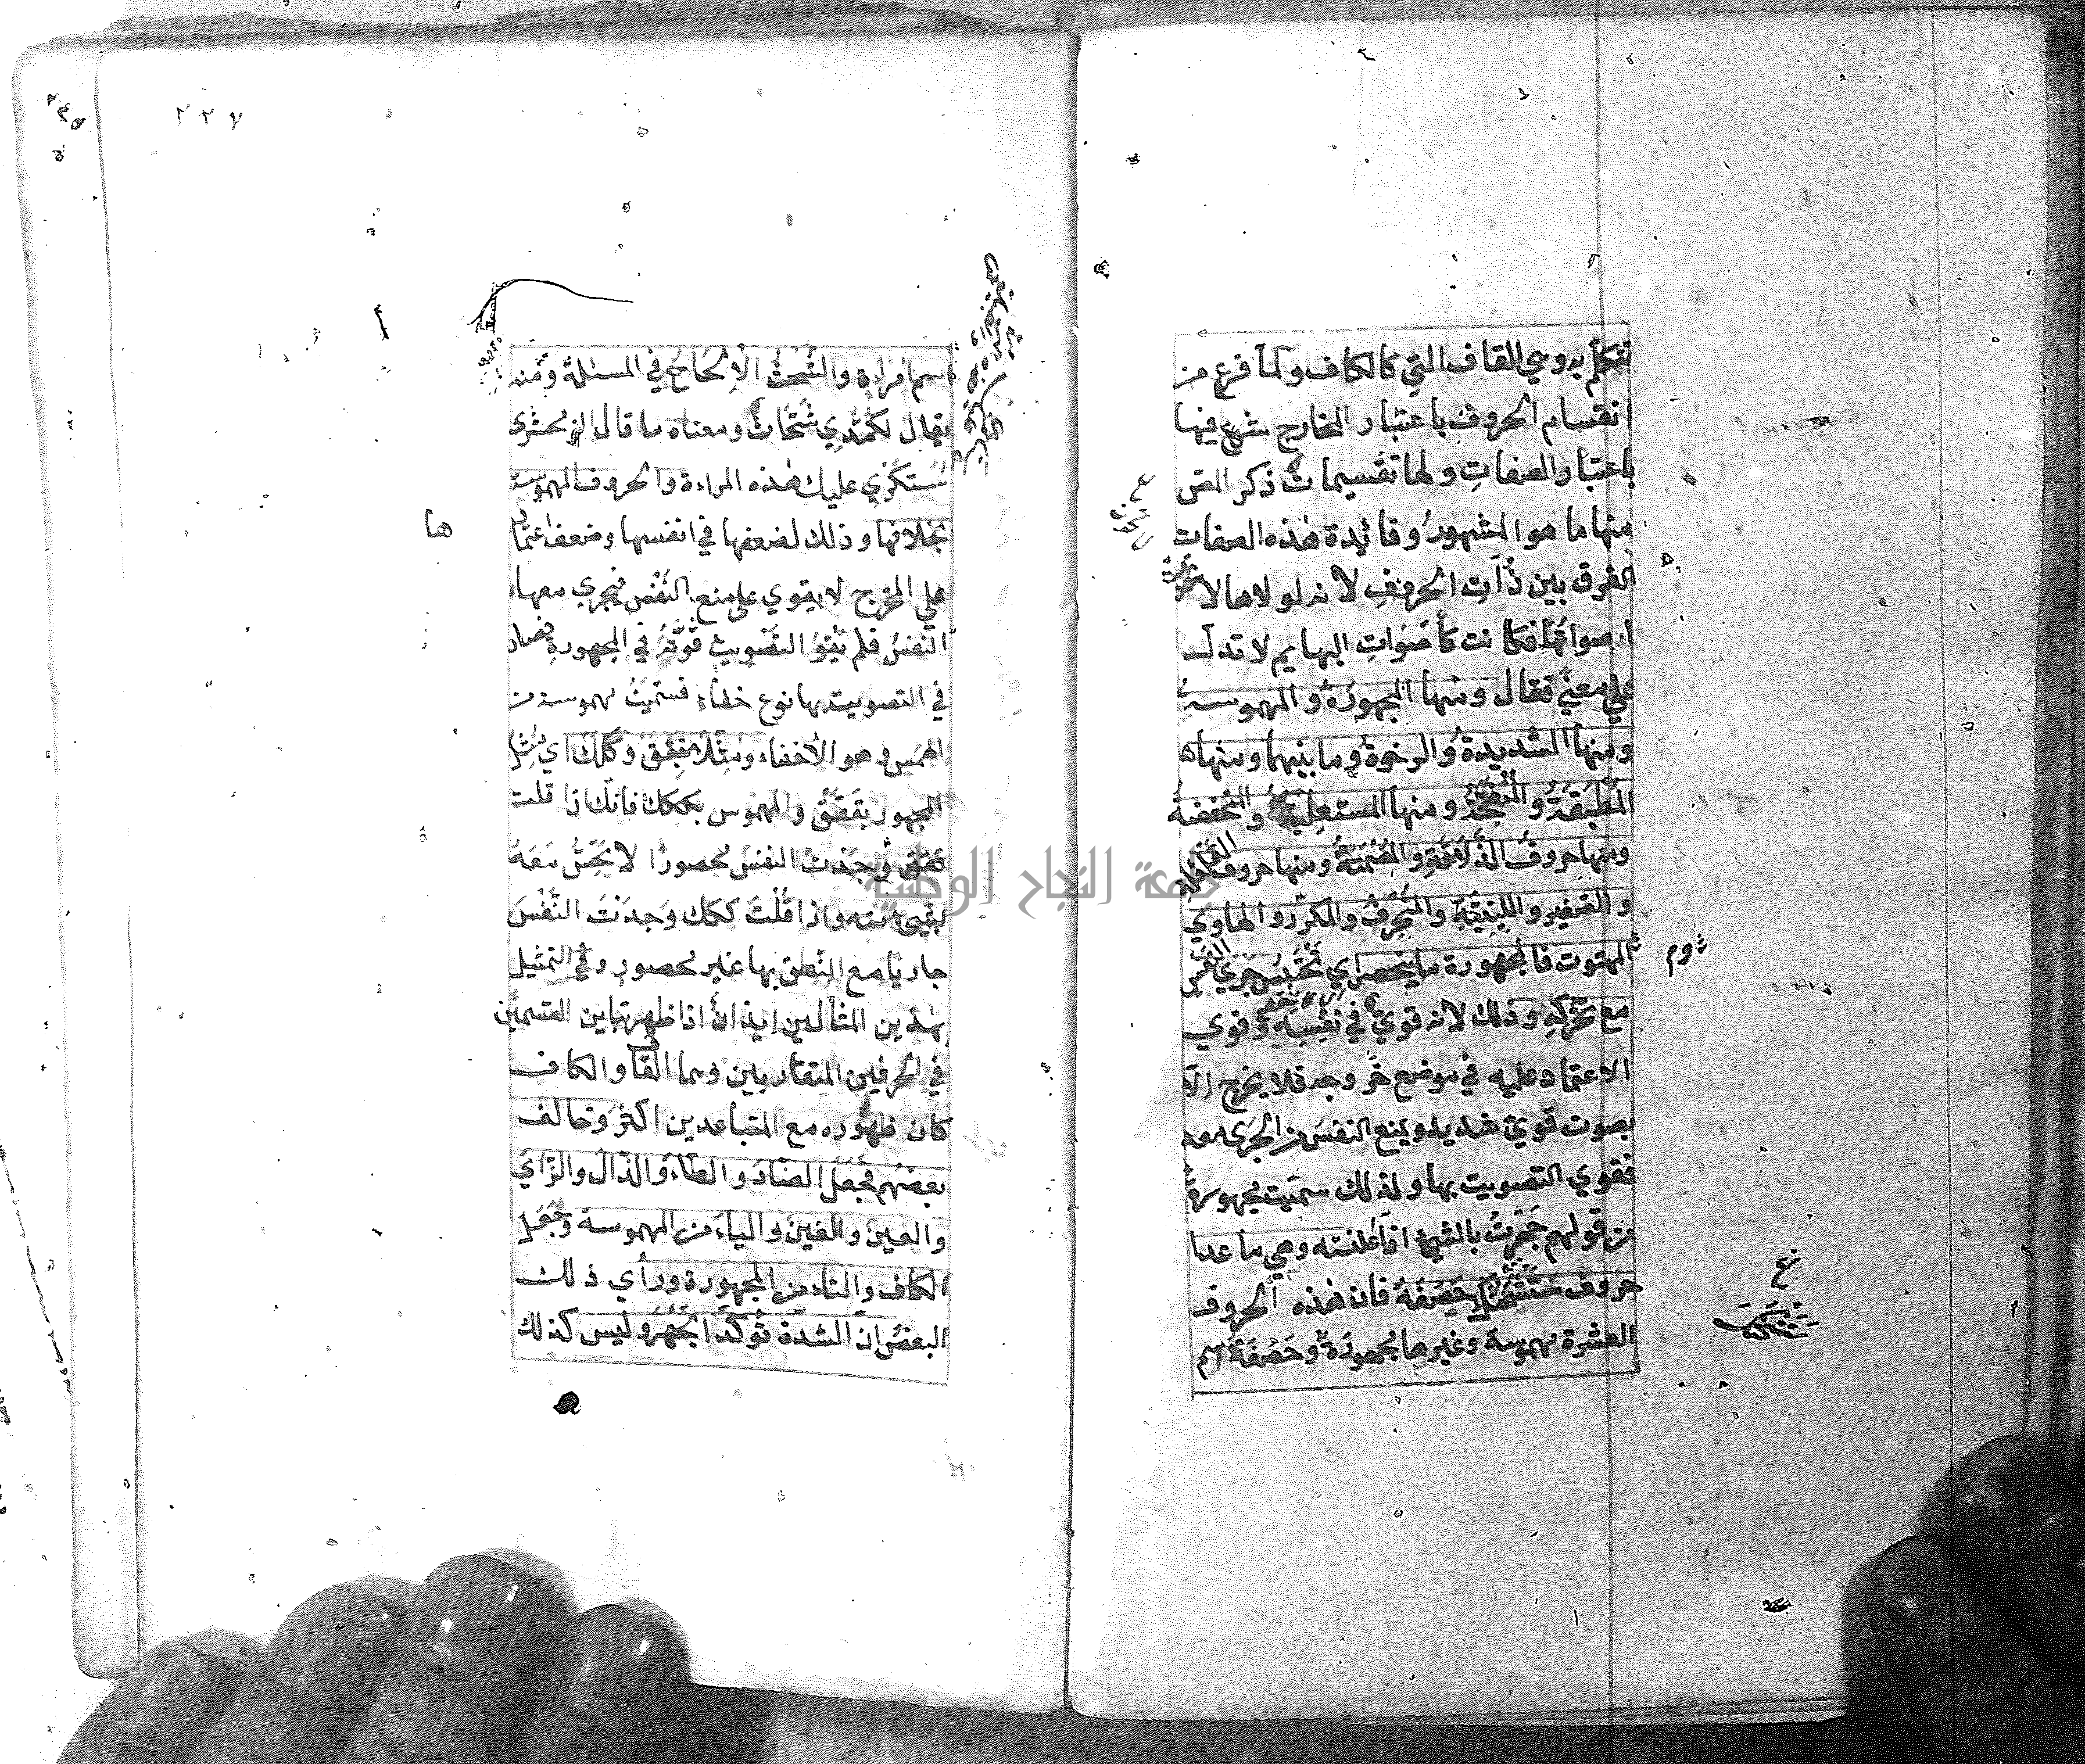 تتكلم به وهي القاف التي كالكاف ولما فرغ من
انقسام الحروف باعتبار المخارج شرع فيها
باعتبار الصفات ولها تقسيمات ذكر المص
منها ما هو المشهور وفائدة هذه الصفات
الفرق بين ذوات الحروف لانه لولاها لا
اصواتها فكانت كأصوات البهايم لا تدل
على معنى فقال ومنها المجهورة والمهموسة
ومنها الشديدة والرخوة وما بينهما ومنها
المطبقة والمنفتحة ومنها المستعلية والمنخفضة
ومنها حروف الذلاقة والمصمتة ومنها حروف القلقلة
والصفير واللينة والمنحرف والمكرر والهاوي
المهتوت فالمجهورة ما ينحصر اي تحتبس جري النفس
مع تحركه وذلك لانه قوي في نفسه وقوي
الاعتماد عليه في موضع خروجه فلا يخرج الا
بصوت قوي شديد ويمنع النفس من الجري معه
فقوي التصويت بها ولذلك سميت مجهورة
من قولهم جهرت بالشيء اذا اعلنته وهي ما عدا
حروف ستشحثك خصفة فان هذه الحروف
العشرة مهموسة وغيرها مجهورة وخصفة اسم
٢٢٧
اسم امراءة والشحث الالحاح في المسئلة ومنه
يقال للمكدي شحاث ومعناه ما قال الزمخشري
ستكدي عليك هذه المراءة والحروف المهموسة
بخلافها وذلك لضعفها في انفسها وضعف اعتما
ها
على المخرج لا يقوي على منع النفس فيجري معها
النفس فلم يقو التصويت قوته في المجهورة فصار
في التصويت بها نوع خفاء فسميت مهموسة من
الهمس وهو الاخفاء ومثلا بققق وككك اي مثل
المجهور بققق والمهموس بككك فانك اذا قلت
ققق وجدت النفس محصورا لا تحس معه
بشيء منه واذا قلت ككك وجدت النفس
جاريا مع النطق بها غير محصور وفي التمثيل
بهذين المثالين ايذان اذا ظهر تباين القسمين
في الحرفين المتقاربين وهما القاف والكاف
كان ظهوره مع المتباعدين اكثر وخالف
بعضهم فجعل الضاد والظاء والذال والزاي
والعين والغين والياء من المهموسة وجعل
الكاف والتاء من المجهورة ورأي ذلك
البعض ان الشدة تؤكد الجهر وليس كذلك
جامعة النجاح الوطنية